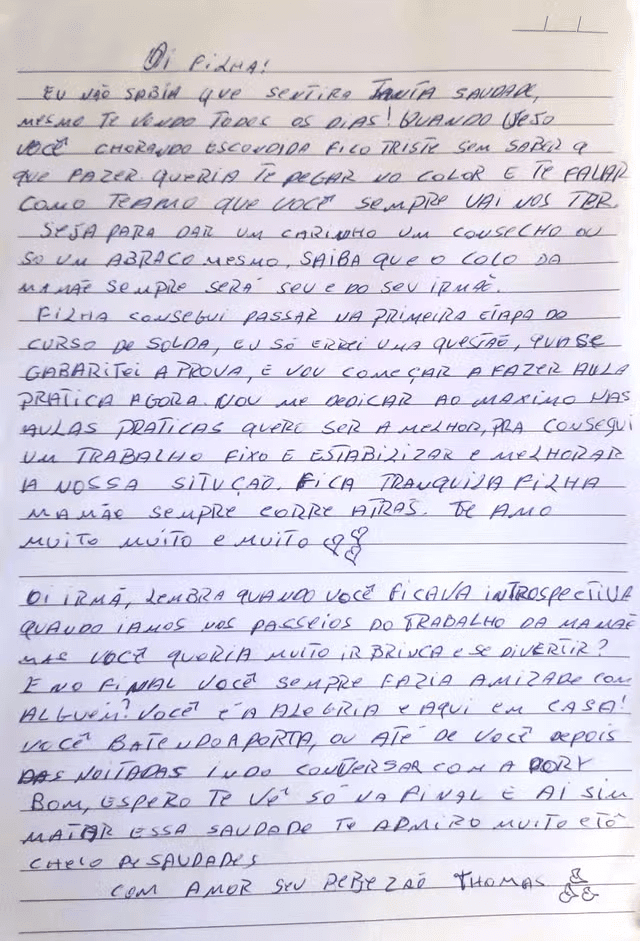 Oi FILHA!
EU NÃO SABIA QUE SENTIRA TANTA SAUDADE,
MESMO TE VENDO TODOS OS DIAS! QUANDO VEJO
VOCÊ CHORANDO ESCONDIDA FICO TRISTE SEM SABER O
QUE FAZER. QUERIA TE PEGAR NO COLOR E TE FALAR
COMO TEAMO QUE VOCÊ SEMPRE VAI NOS TER
SEJA PARA DAR UM CARINHO UM CONSELHO OU
SO UM ABRAÇO MESMO, SAIBA QUE O COLO DA
MAMÃE SEMPRE SERÁ SEU E DO SEU IRMÃO.
FILHA CONSEGUI PASSAR NA PRIMEIRA ETAPA DO
CURSO DE SOLDA, EU SÓ ERREI UMA QUESTÃO, QUASE
GABARITEI A PROVA, E VOU COMEÇAR A FAZER AULA
PRATICA AGORA. VOU ME DEDICAR AO MAXIMO NAS
AULAS PRATICAS QUERO SER A MELHOR, PRA CONSEGUI
UM TRABALHO FIXO E ESTABILIZAR E MELHORAR
A NOSSA SITUÇÃO. FICA TRANQUILA FILHA
MAMÃE SEMPRE CORRE ATRÁS. TE AMO
MUITO MUITO E MUITO
OI IRMÃ, LEMBRA QUANDO VOCÊ FICAVA INTROSPECTIVA
QUANDO IAMOS NOS PASSEIOS DO TRABALHO DA MAMÃE
MAS VOCÊ QUERIA MUITO IR BRINCA E SE DIVERTIR?
E NO FINAL VOCÊ SEMPRE FAZIA AMIZADE COM
ALGUEM? VOCÊ É A ALEGRIA E AQUI EM CASA!
VOCÊ BATENDO A PORTA, OU ATÉ DE VOCÊ DEPOIS
DAS NOITADAS INDO CONVERSAR COM A DORY
BOM, ESPERO TE VÊ SÓ NA FINAL E AI SIM
MATAR ESSA SAUDADE TE ADMIRO MUITO E TÔ
CHEIO DE SAUDADES
COM AMOR SEU BEBEZÃO THOMAS